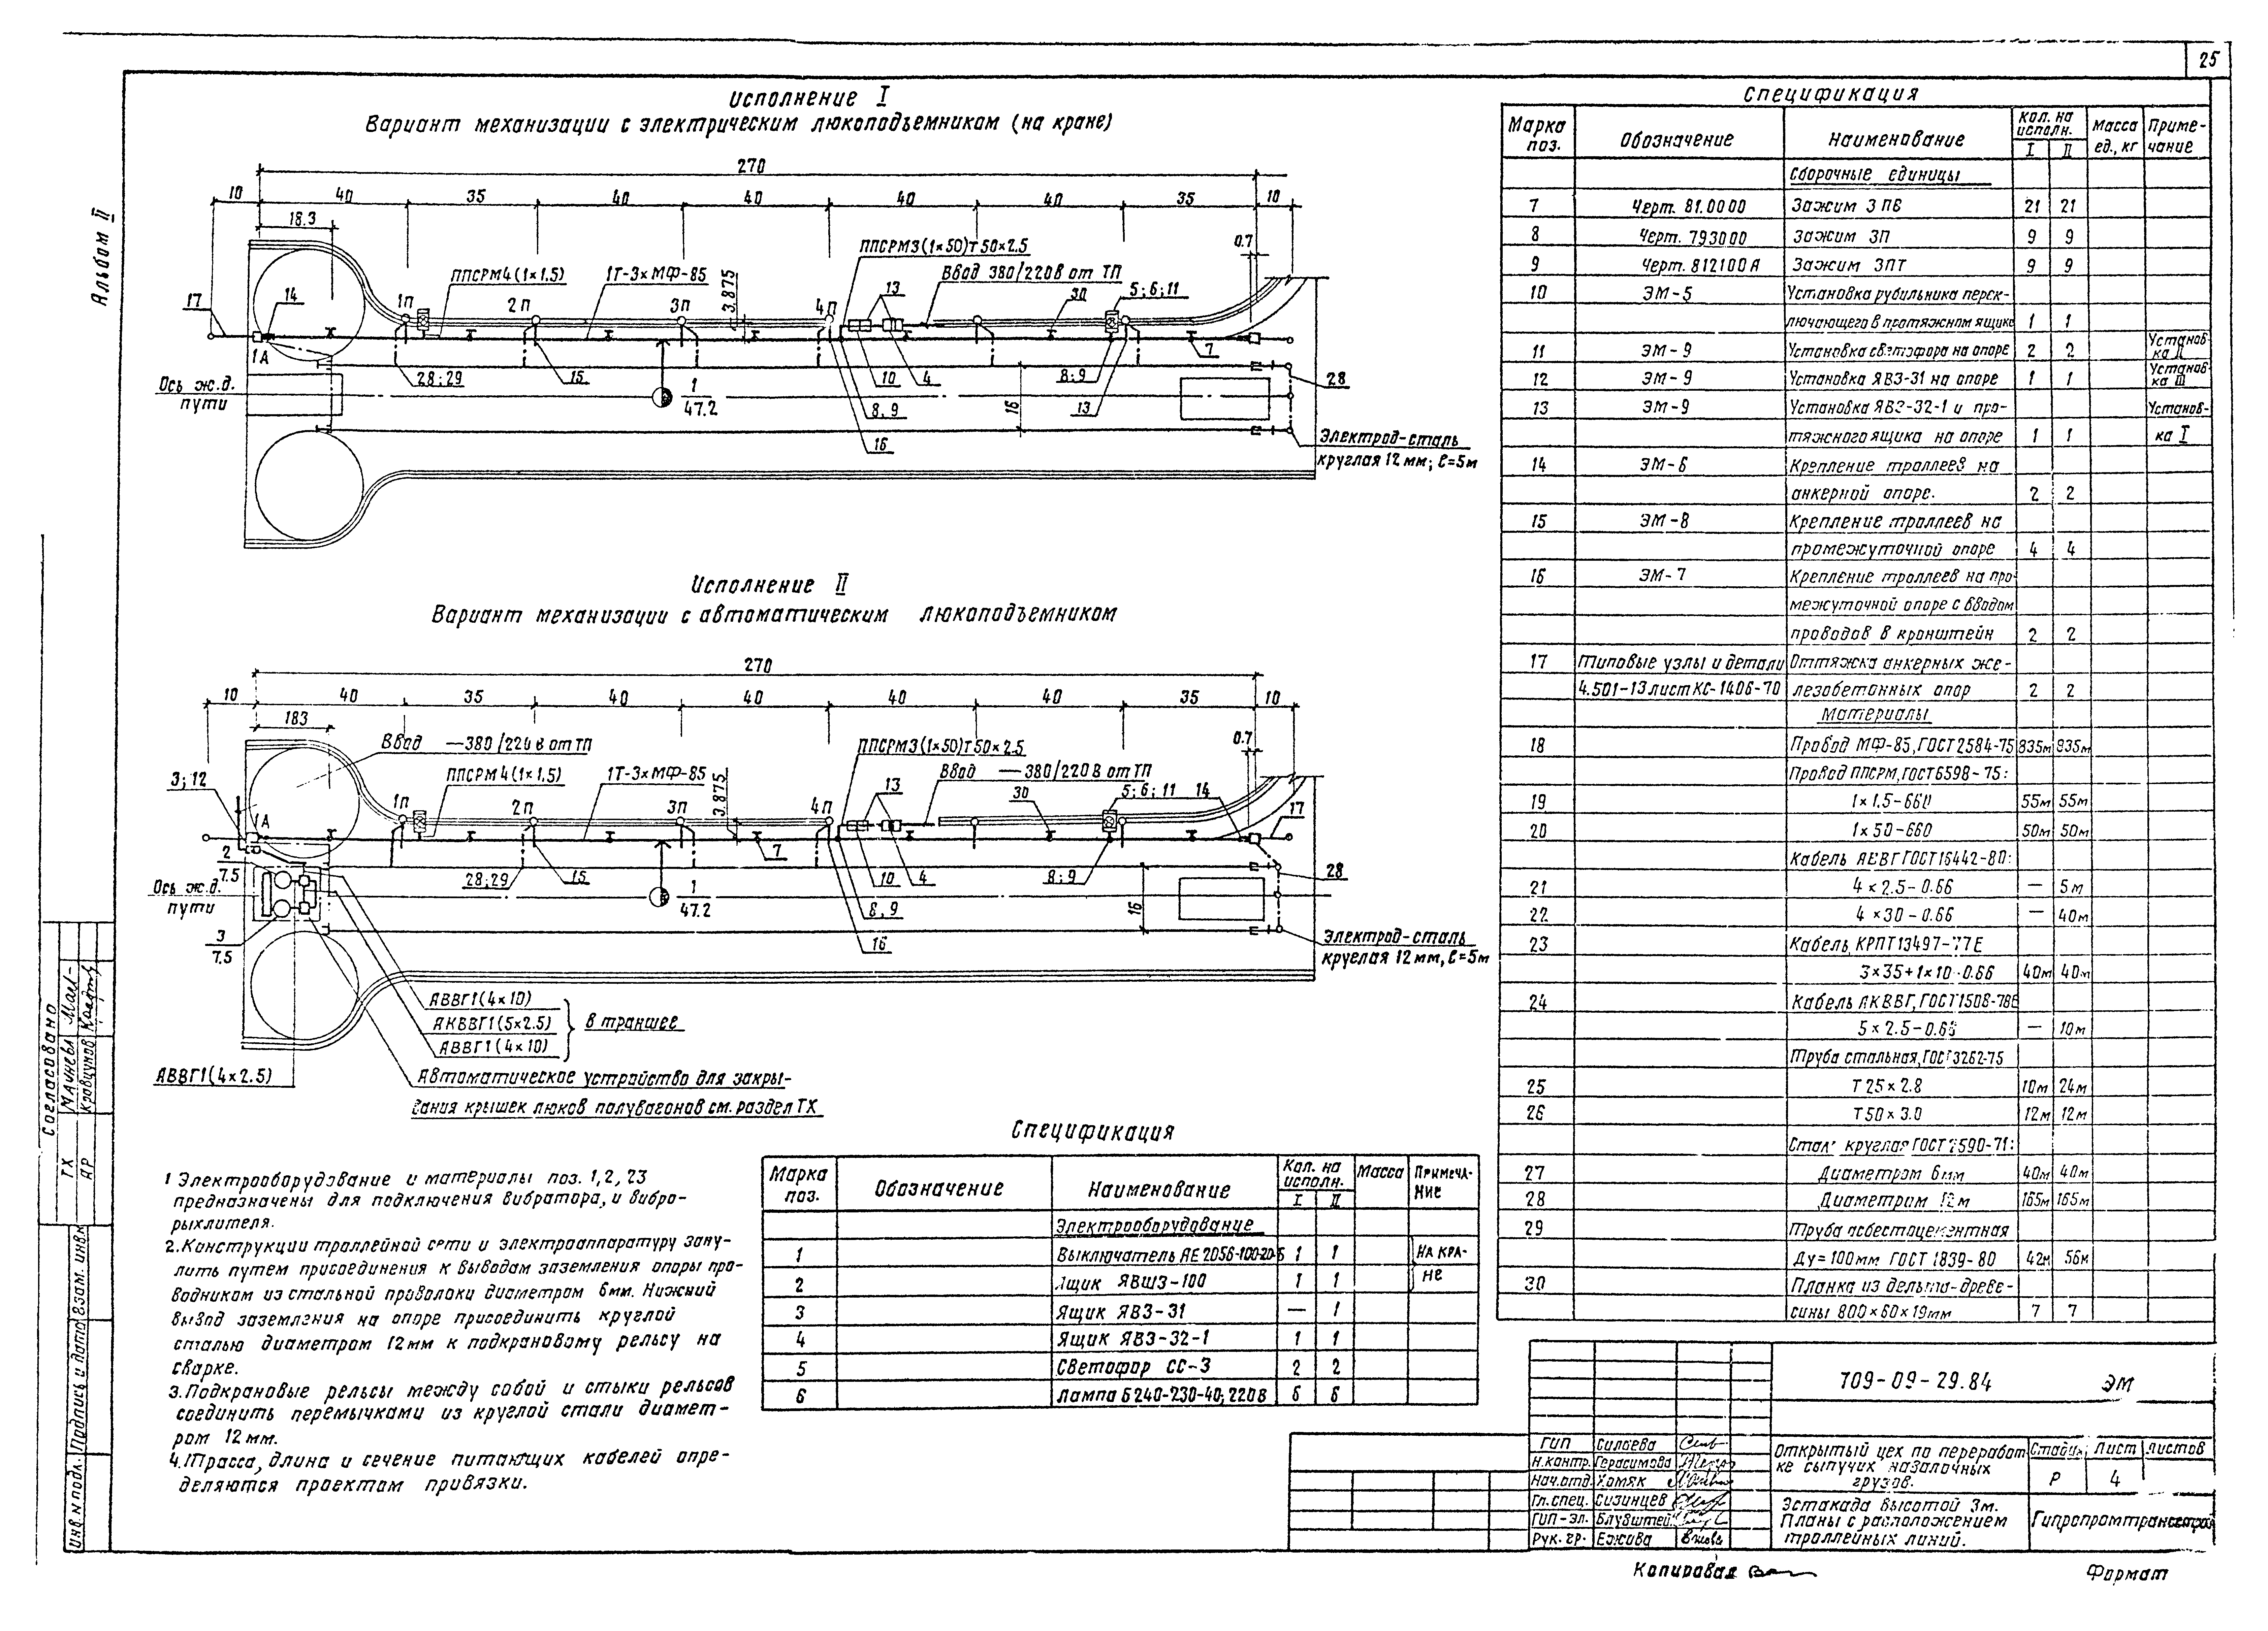 25
Альбом II
Исполнение I
Вариант механизации с электрическим люкоподъемником (на кране)
270
10 40 35 40 40 40 40 35 10
18.3
0.7
ППСРМ3(1×50)Т50×2.5
ППСРМ4(1×1.5)
1Т-3×МФ-85
Ввод 380/220В от ТП
3.875
17 14 1П 2П 3П 4П 13 30 5;6;11
1А
28;29 15 10 4 8;9 7 28
Ось ж.д.
пути
1
47.2
8,9 13 16
16
Электрод-сталь
круглая 12мм; ℓ=5м
Исполнение II
Вариант механизации с автоматическим люкоподъемником
270
10 40 35 40 40 40 40 35 10
183
0.7
Ввод —380/220В от ТП
ППСРМ3(1×50)Т50×2.5
ППСРМ4(1×1.5)
1Т-3×МФ-85
Ввод —380/220В от ТП
3.875
3;12 1П 2П 3П 4П 13 30 5;6;11 14 17
1А
2
7.5
7
28;29 15 10 4 8;9 28
Ось ж.д.
пути
1
47.2
8,9
16
3
7.5
16
Электрод-сталь
круглая 12мм, ℓ=5м
АВВГ1(4×10)
АКВВГ1(5×2.5)
АВВГ1(4×10)
в траншее
АВВГ1(4×2.5)
Автоматическое устройство для закры-
вания крышек люков полувагонов см. раздел ТХ
1 Электрооборудование и материалы поз. 1, 2, 23
предназначены для подключения вибратора, и вибро-
рыхлителя.
2.Конструкции троллейной сети и электроаппаратуру зану-
лить путем присоединения к выводам заземления опоры про-
водником из стальной проволоки диаметром 6мм. Нижний
вывод заземления на опоре присоединить круглой
сталью диаметром 12мм к подкрановому рельсу на
сварке.
3.Подкрановые рельсы между собой и стыки рельсов
соединить перемычками из круглой стали диамет-
ром 12мм.
4.Трасса, длина и сечение питающих кабелей опре-
деляются проектом привязки.
Спецификация
Марка поз. Обозначение Наименование Кол. на исполн. I II Масса Примеча-ние
Электрооборудование
1 Выключатель АЕ2056-100-20-Б 1 1 на кра-
2 Ящик ЯВШ3-100 1 1 не
3 Ящик ЯВ3-31 — 1
4 Ящик ЯВ3-32-1 1 1
5 Светофор СС-3 2 2
6 Лампа Б240-230-40; 220В 6 6
Спецификация
Марка поз. Обозначение Наименование Кол. на исполн. I II Масса ед., кг Приме-чание
Сборочные единицы
7 Черт. 81.0000 Зажим 3ПВ 21 21
8 Черт. 793000 Зажим 3П 9 9
9 Черт. 812100А Зажим 3ПТ 9 9
10 ЭМ-5 Установка рубильника перек-
лючающего в протяжном ящике 1 1
11 ЭМ-9 Установка светофора на опоре 2 2 Установ-ка II
12 ЭМ-9 Установка ЯВ3-31 на опоре 1 1 Установ-ка III
13 ЭМ-9 Установка ЯВ3-32-1 и про- Установ-
тяжного ящика на опоре 1 1 ка I
14 ЭМ-6 Крепление троллеев на
анкерной опоре. 2 2
15 ЭМ-8 Крепление троллеев на
промежуточной опоре 4 4
16 ЭМ-7 Крепление троллеев на про-
межуточной опоре с вводом
проводов в кронштейн 2 2
17 Типовые узлы и детали Оттяжка анкерных же-
4.501-13 лист КС-1406-70 лезобетонных опор 2 2
Материалы
18 Провод МФ-85, ГОСТ 2584-75 835м 835м
Провод ППСРМ, ГОСТ6598-75:
19 1×1.5-660 55м 55м
20 1×50-660 50м 50м
Кабель АВВГ ГОСТ16442-80:
21 4×2.5-0.66 — 5м
22 4×30-0.66 — 40м
23 Кабель, КРПТ13497-77Е
3×35+1×10-0.66 40м 40м
24 Кабель АКВВГ, ГОСТ1508-78Е
5×2.5-0.66 — 10м
Труба стальная, ГОСТ3262-75
25 Т25×2.8 10м 24м
26 Т50×3.0 12м 12м
Сталь круглая ГОСТ 2590-71:
27 Диаметром 6мм 40м 40м
28 Диаметрим 12м 165м 165м
29 Труба асбестоцементная
Ду=100мм ГОСТ 1839-80 42м 56м
30 Планка из дельта-древе-
сины 800×60×19мм 7 7
709-09-29.84 ЭМ
ГИП Силаева
Н.контр. Герасимова
Нач.отд. Хомяк
Гл.спец. Сизинцев
ГИП-эл. Блувштейн
Рук.гр. Ежова
Открытый цех по переработ-
ке сыпучих навалочных
грузов.
Стадия Лист Листов
Р 4
Эстакада высотой 3м.
Планы с расположением
троллейных линий.
Гипропромтрансстрой
Копировал
Формат
Согласовано
ТХ Мачнева
АР Кравцунов
Взам. инв.
Подпись и дата
Инв. № подл.